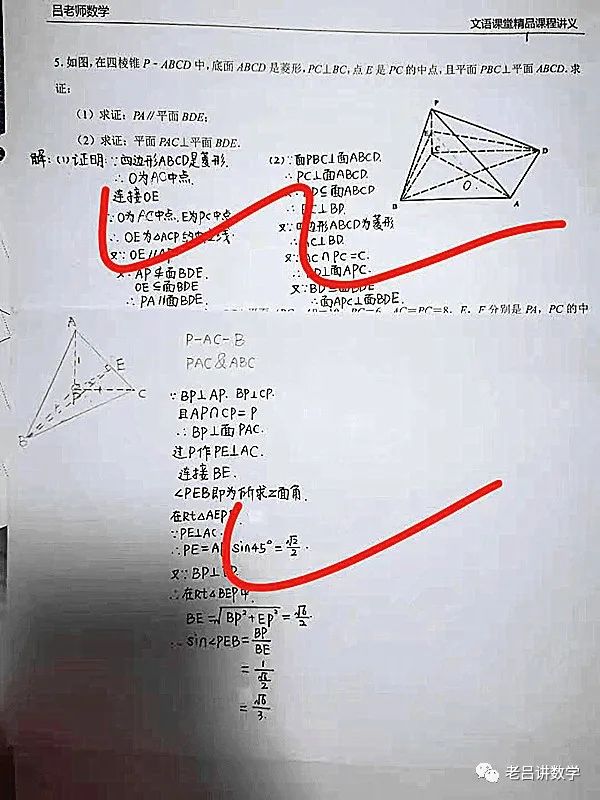 吕老师数学
文语课堂精品课程讲义
5. 如图,在四棱锥 P-ABCD 中,底面 ABCD 是菱形,PC⊥BC,点 E 是 PC 的中点,且平面 PBC⊥平面 ABCD. 求
证:
(1) 求证: PA∥平面 BDE;
(2) 求证: 平面 PAC⊥平面 BDE.
解: (1)证明: ∵四边形ABCD是菱形.
∴ O为AC中点.
连接OE
∵O为AC中点、E为PC中点
∴ OE为△ACP的中位线.
又∵ OE∥AP
∵ AP⊈面BDE.
OE⊆面BDE
∴ PA∥面BDE.
(2)∵面PBC⊥面ABCD.
∴ PC⊥面ABCD.
∵BD⊆面ABCD
∴ PC⊥BD.
又∵四边形ABCD为菱形
∴AC⊥BD.
又∵AC∩PC=C.
∴BD⊥面APC.
又∵BD⊆面BDE
∴面APC⊥面BDE.
P
E
C
D
B
O
A
AC=PC=8. E, F 分别是 PA, PC 的中
A
E
P
C
B
P-AC-B
PAC&ABC
∵BP⊥AP. BP⊥CP.
且AP∩CP=P
∴BP⊥面PAC.
过P作PE⊥AC.
连接BE.
∠PEB即为所求二面角.
在Rt△AEP中
∵PE⊥AC.
∴PE=AP sin45°=√2/2.
又∵BP⊥EP
∴在Rt△BEP中.
BE=√(BP²+EP²)=√6/2.
∴sin∠PEB=BP/BE
=1/(√6/2)
=√6/3.
老吕讲数学